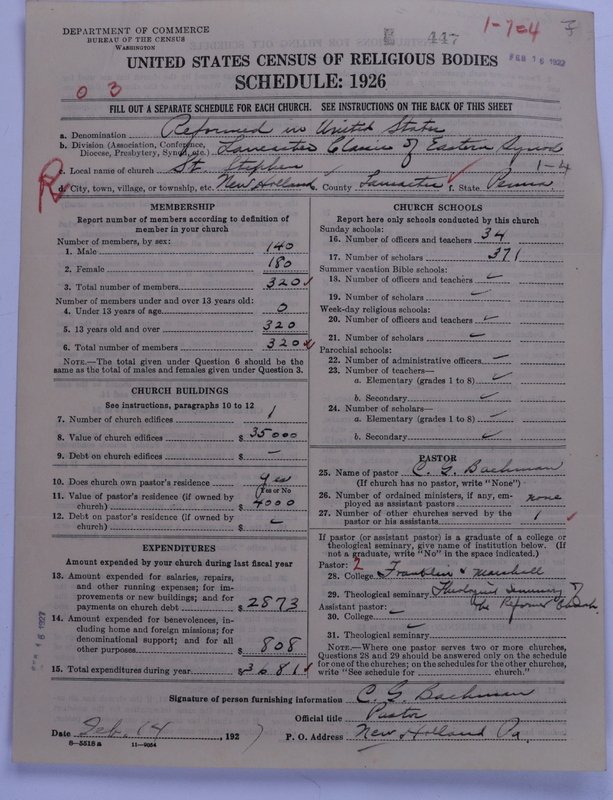 DEPARTMENT OF COMMERCE
BUREAU OF THE CENSUS
WASHINGTON
447
1-7=4
FEB 16 1927
UNITED STATES CENSUS OF RELIGIOUS BODIES
SCHEDULE: 1926
0 3
FILL OUT A SEPARATE SCHEDULE FOR EACH CHURCH. SEE INSTRUCTIONS ON THE BACK OF THIS SHEET
a. Denomination Reformed in United States
b. Division (Association, Conference, Diocese, Presbytery, Synod, etc.) Lancaster Classis of Eastern Synod
c. Local name of church St. Stephen
1-4
R
d. City, town, village, or township, etc. New Holland, County Lancaster f. State Penna
MEMBERSHIP
Report number of members according to definition of
member in your church
Number of members, by sex:
1. Male 140
2. Female 180
3. Total number of members 320
Number of members under and over 13 years old:
4. Under 13 years of age 0
5. 13 years old and over 320
6. Total number of members 320
NOTE.—The total given under Question 6 should be
same as the total of males and females given under Question 3.
CHURCH BUILDINGS
See instructions, paragraphs 10 to 12
7. Number of church edifices 1
8. Value of church edifices $ 35000
9. Debt on church edifices $ —
10. Does church own pastor's residence? yes
(Yes or No)
11. Value of pastor's residence (if owned by
church) $ 4000
12. Debt on pastor's residence (if owned by
church) $ —
EXPENDITURES
Amount expended by your church during last fiscal year
13. Amount expended for salaries, repairs,
and other running expenses; for im-
provements or new buildings; and for
payments on church debt $ 2873
14. Amount expended for benevolences, in-
cluding home and foreign missions; for
denominational support; and for all
other purposes $ 808
15. Total expenditures during year $ 3681
CHURCH SCHOOLS
Report here only schools conducted by this church
Sunday schools:
16. Number of officers and teachers 34
17. Number of scholars 371
Summer vacation Bible schools:
18. Number of officers and teachers —
19. Number of scholars —
Week-day religious schools:
20. Number of officers and teachers —
21. Number of scholars —
Parochial schools:
22. Number of administrative officers —
23. Number of teachers—
a. Elementary (grades 1 to 8) —
b. Secondary —
24. Number of scholars—
a. Elementary (grades 1 to 8) —
b. Secondary —
PASTOR
25. Name of pastor C. G. Bachman
(If church has no pastor, write "None")
26. Number of ordained ministers, if any, em-
ployed as assistant pastors none
27. Number of other churches served by the
pastor or his assistants 1
If pastor (or assistant pastor) is a graduate of a college or
theological seminary, give name of institution below. (If
not a graduate, write "No" in the space indicated.)
Pastor: 2
28. College Franklin & Marshall
29. Theological seminary Theological Seminary of
The Reformed Church
Assistant pastor: —
30. College —
31. Theological seminary
NOTE.—Where one pastor serves two or more churches,
Questions 28 and 29 should be answered only on the schedule
for one of the churches; on the schedules for the other churches,
write "See schedule for church."
Signature of person furnishing information C. G. Bachman
Official title Pastor
Date Feb. 14, 1927 P. O. Address New Holland Pa.
8-5518 a 11-9054